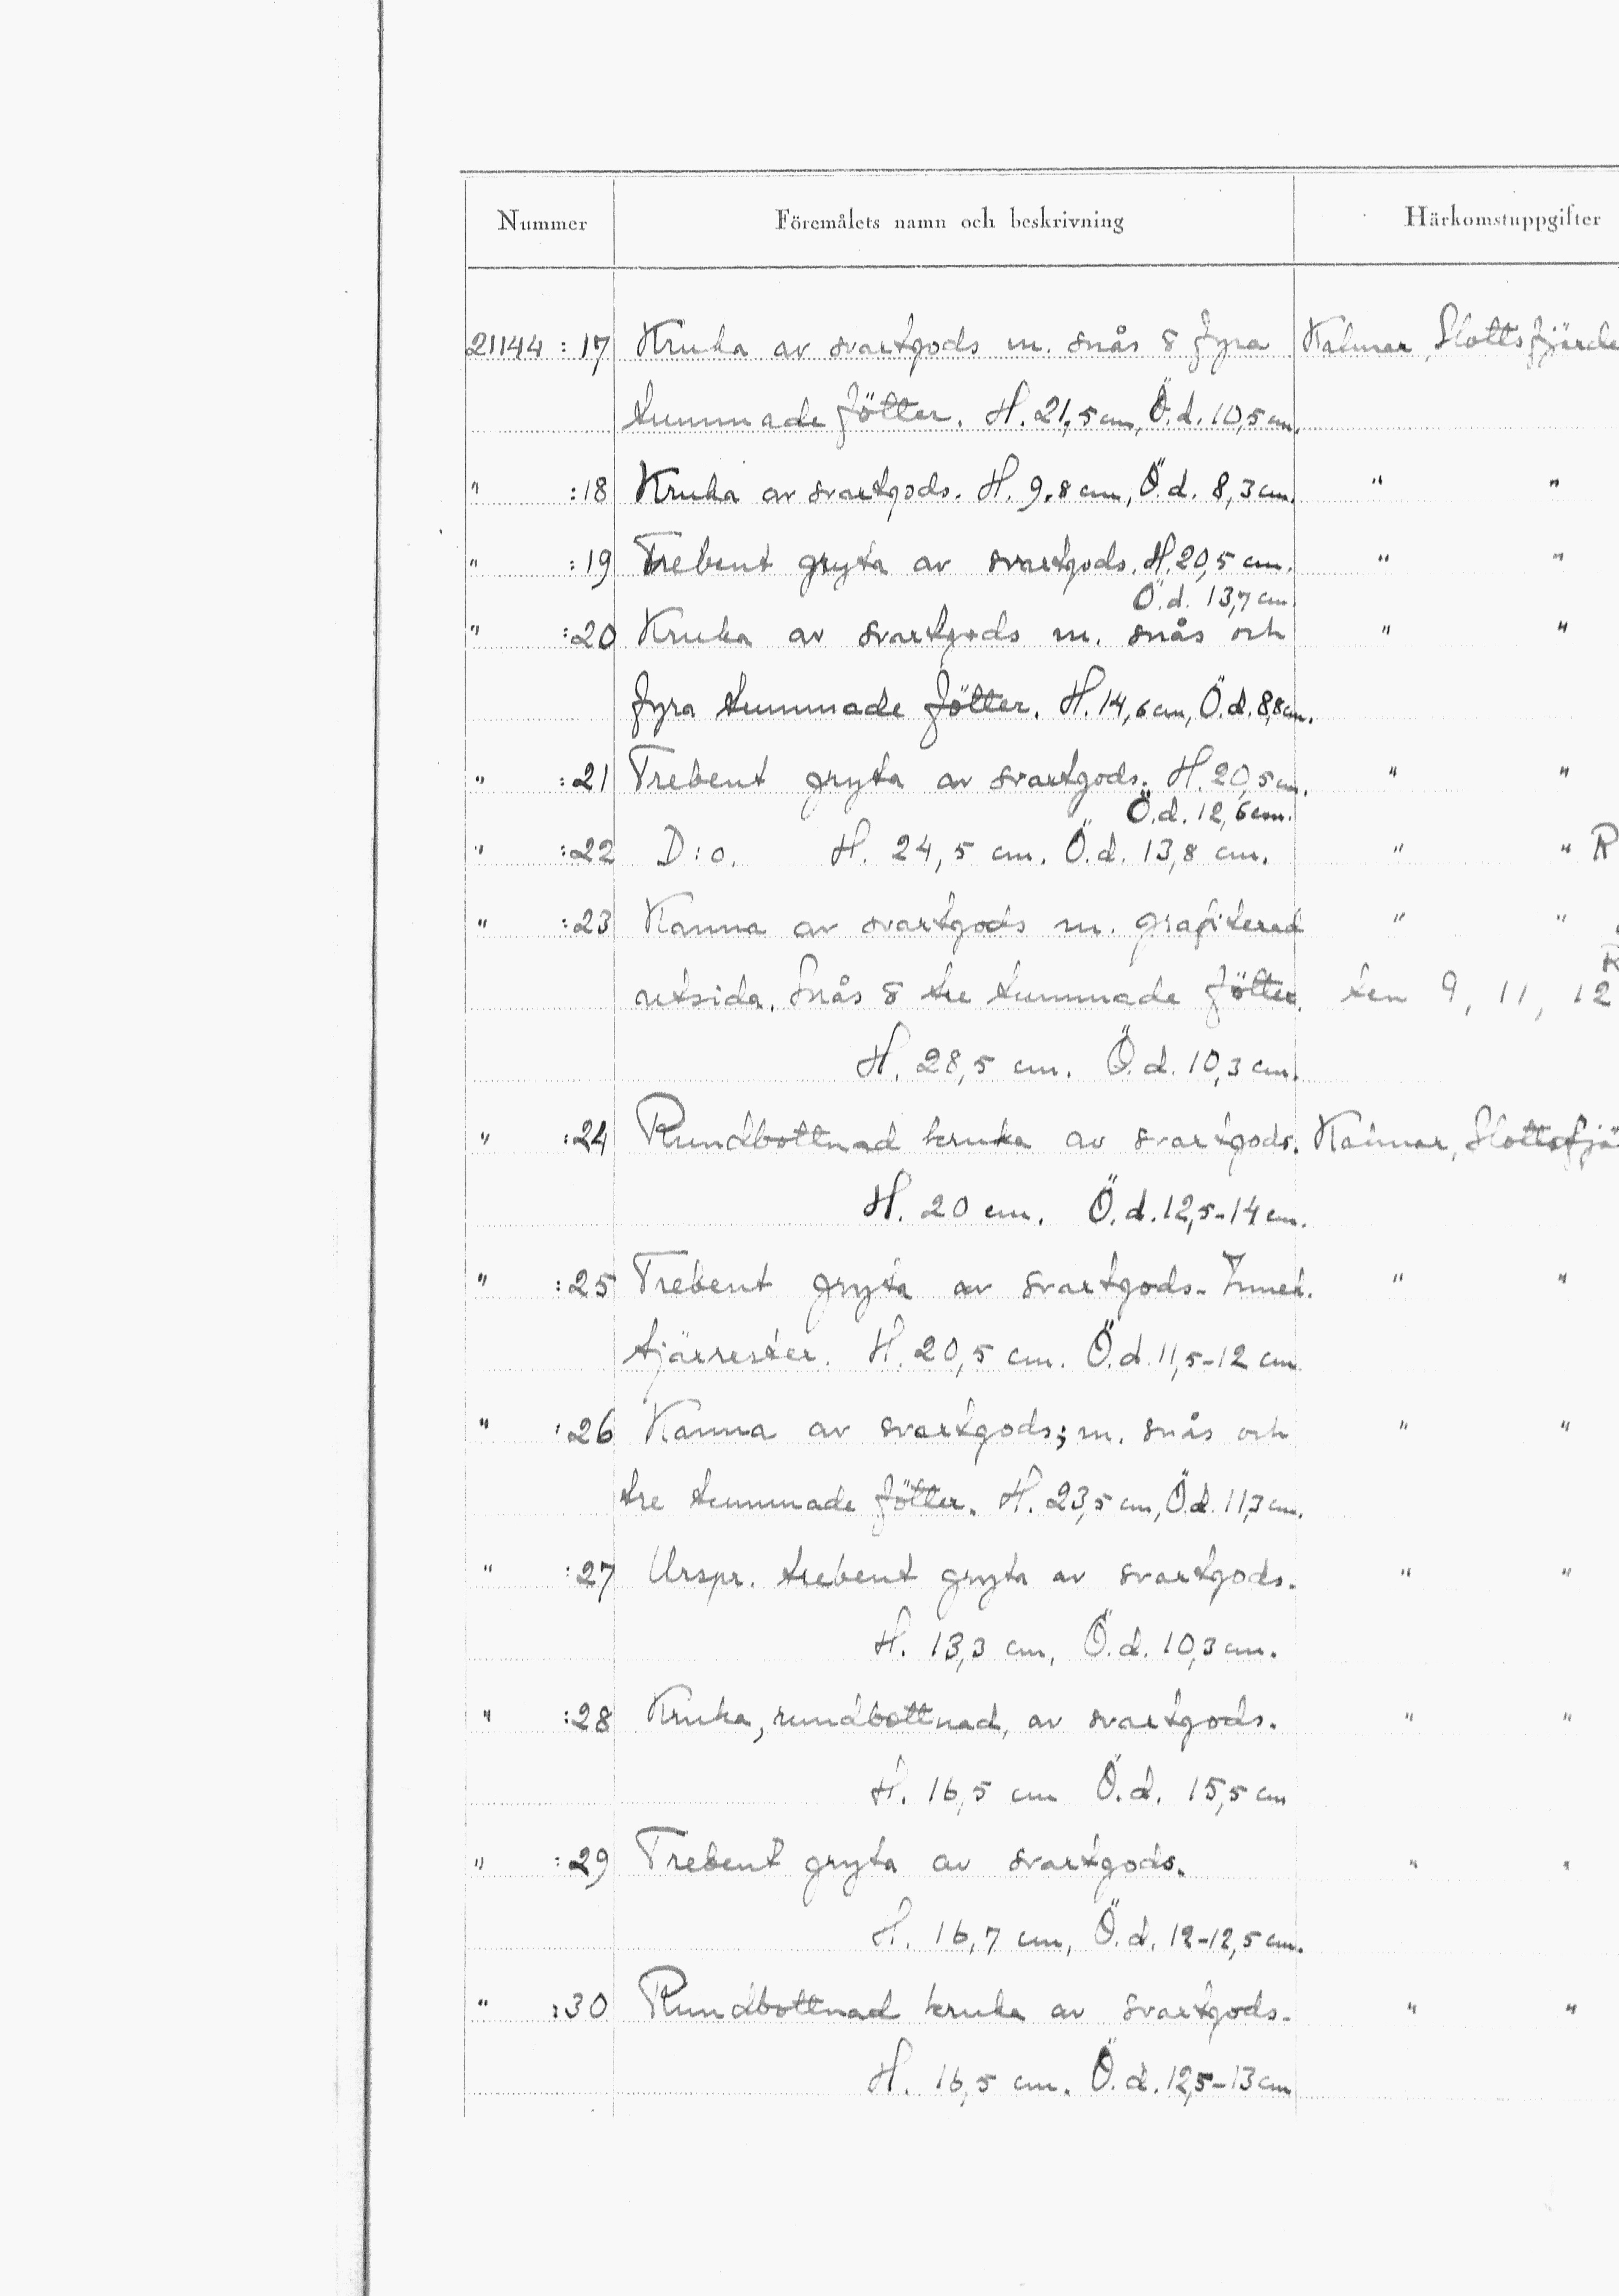 Nummer Föremålets namn och beskrivning Härkomstuppgifter
21144 :17 Kruka av svartgods m. snås & fyra Kalmar, Slottsfjärde
tummade fötter. H. 21,5 cm, Ö.d. 10,5 cm.
" :18 Kruka av svartgods. H. 9,8 cm, Ö.d. 8,3 cm. " "
" :19 Trebent gryta av svartgods. H. 20,5 cm. " "
Ö.d. 13,7 cm.
" :20 Kruka av svartgods m. snås och " "
fyra tummade fötter. H. 14,6 cm, Ö.d. 8,8 cm.
" :21 Trebent gryta av svartgods. H. 20,5 cm. " "
Ö.d. 12,6 cm.
" :22 D:o. H. 24,5 cm. Ö.d. 13,8 cm. " " R
" :23 Kanna av svartgods m. grafiterad " "
utsida. Snås & tre tummade fötter. ten 9, 11, 12
H. 28,5 cm. Ö.d. 10,3 cm.
" :24 Rundbottnad kruka av svartgods. Kalmar, Slottsfjä
H. 20 cm. Ö.d. 12,5-14 cm.
" :25 Trebent gryta av svartgods. " "
tjärrester. H. 20,5 cm. Ö.d. 11,5-12 cm
" :26 Kanna av svartgods; m. snås och " "
tre tummade fötter. H. 23,5 cm, Ö.d. 11,3 cm.
" :27 Urspr. trebent gryta av svartgods. " "
H. 13,3 cm, Ö.d. 10,3 cm.
" :28 Kruka, rundbottnad, av svartgods. " "
H. 16,5 cm Ö.d. 15,5 cm
" :29 Trebent gryta av svartgods. " "
H. 16,7 cm, Ö.d. 12-12,5 cm.
" :30 Rundbottnad kruka av svartgods. " "
H. 16,5 cm. Ö.d. 12,5-13 cm